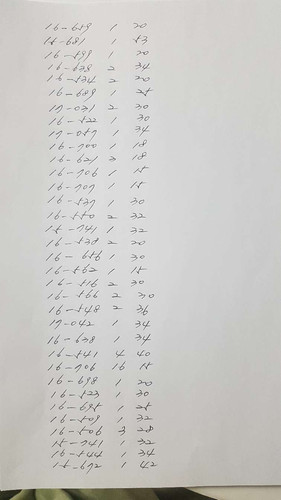 16-659 1 20
15-681 1 53
16-599 1 20
16-638 2 34
16-534 2 20
16-689 1 25
17-031 2 30
16-522 1 30
17-057 1 34
16-700 1 18
16-621 3 18
16-706 1 15
16-707 1 15
16-537 1 30
16-550 2 32
15-741 1 32
16-538 2 20
16-656 1 30
16-562 1 15
16-516 2 30
16-566 2 30
16-548 2 36
17-042 1 34
16-638 1 34
16-541 4 40
16-706 16 15
16-698 1 20
16-523 1 30
16-695 1 25
16-509 1 32
16-506 3 28
15-741 1 32
16-544 1 34
15-672 1 42